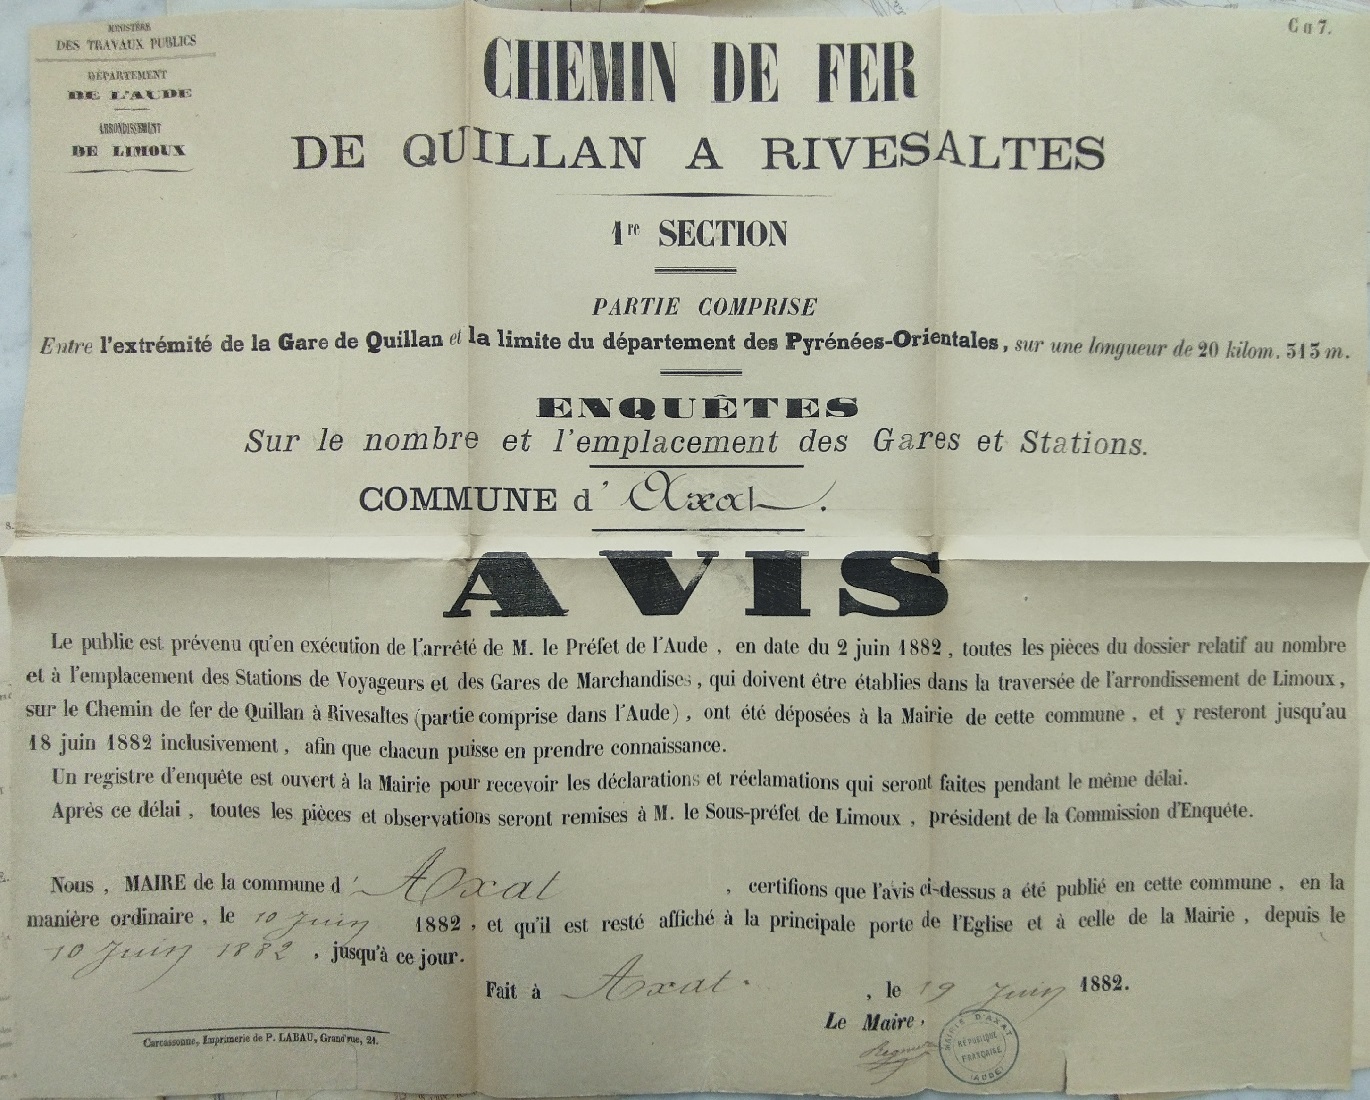 MINISTÈRE
DES TRAVAUX PUBLICS
DÉPARTEMENT
DE L'AUDE
ARRONDISSEMENT
DE LIMOUX
C a 7.
CHEMIN DE FER
DE QUILLAN A RIVESALTES
1re SECTION
PARTIE COMPRISE
Entre l'extrémité de la Gare de Quillan et la limite du département des Pyrénées-Orientales, sur une longueur de 20 kilom. 313 m.
ENQUÊTES
Sur le nombre et l'emplacement des Gares et Stations.
COMMUNE d' Axat.
AVIS
Le public est prévenu qu'en exécution de l'arrêté de M. le Préfet de l'Aude, en date du 2 juin 1882, toutes les pièces du dossier relatif au nombre
et à l'emplacement des Stations de Voyageurs et des Gares de Marchandises, qui doivent être établies dans la traversée de l'arrondissement de Limoux,
sur le Chemin de fer de Quillan à Rivesaltes (partie comprise dans l'Aude), ont été déposées à la Mairie de cette commune, et y resteront jusqu'au
18 juin 1882 inclusivement, afin que chacun puisse en prendre connaissance.
Un registre d'enquête est ouvert à la Mairie pour recevoir les déclarations et réclamations qui seront faites pendant le même délai.
Après ce délai, toutes les pièces et observations seront remises à M. le Sous-préfet de Limoux, président de la Commission d'Enquête.
Nous, MAIRE de la commune d' Axat, certifions que l'avis ci-dessus a été publié en cette commune, en la
manière ordinaire, le 10 Juin 1882, et qu'il est resté affiché à la principale porte de l'Eglise et à celle de la Mairie, depuis le
10 Juin 1882, jusqu'à ce jour.
Fait à Axat, le 19 Juin 1882.
Le Maire,
MAIRIE D'AXAT
RÉPUBLIQUE
FRANÇAISE
(AUDE)
Carcassonne, Imprimerie de P. LABAU, Grand'rue, 21.